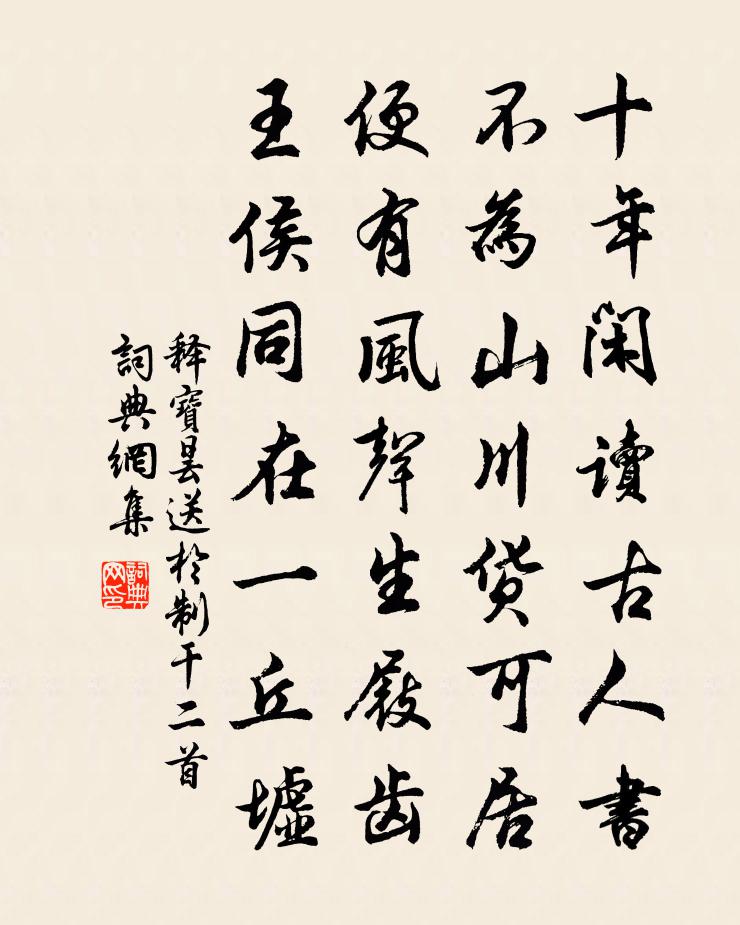 十年閑讀古人書
不為山川貨可居
便有風聲生屐齿
王侯同在一丘墟
释寶曇送於制干二首
詞典網集
詞典网印